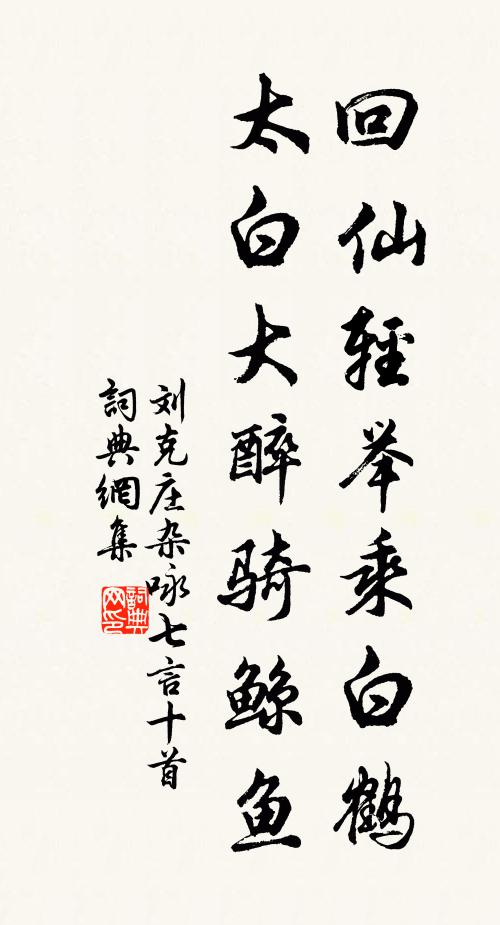 回仙輕举乘白鶴
太白大醉骑鲸鱼
刘克庄杂咏七言十首
詞典網集
詞典网印